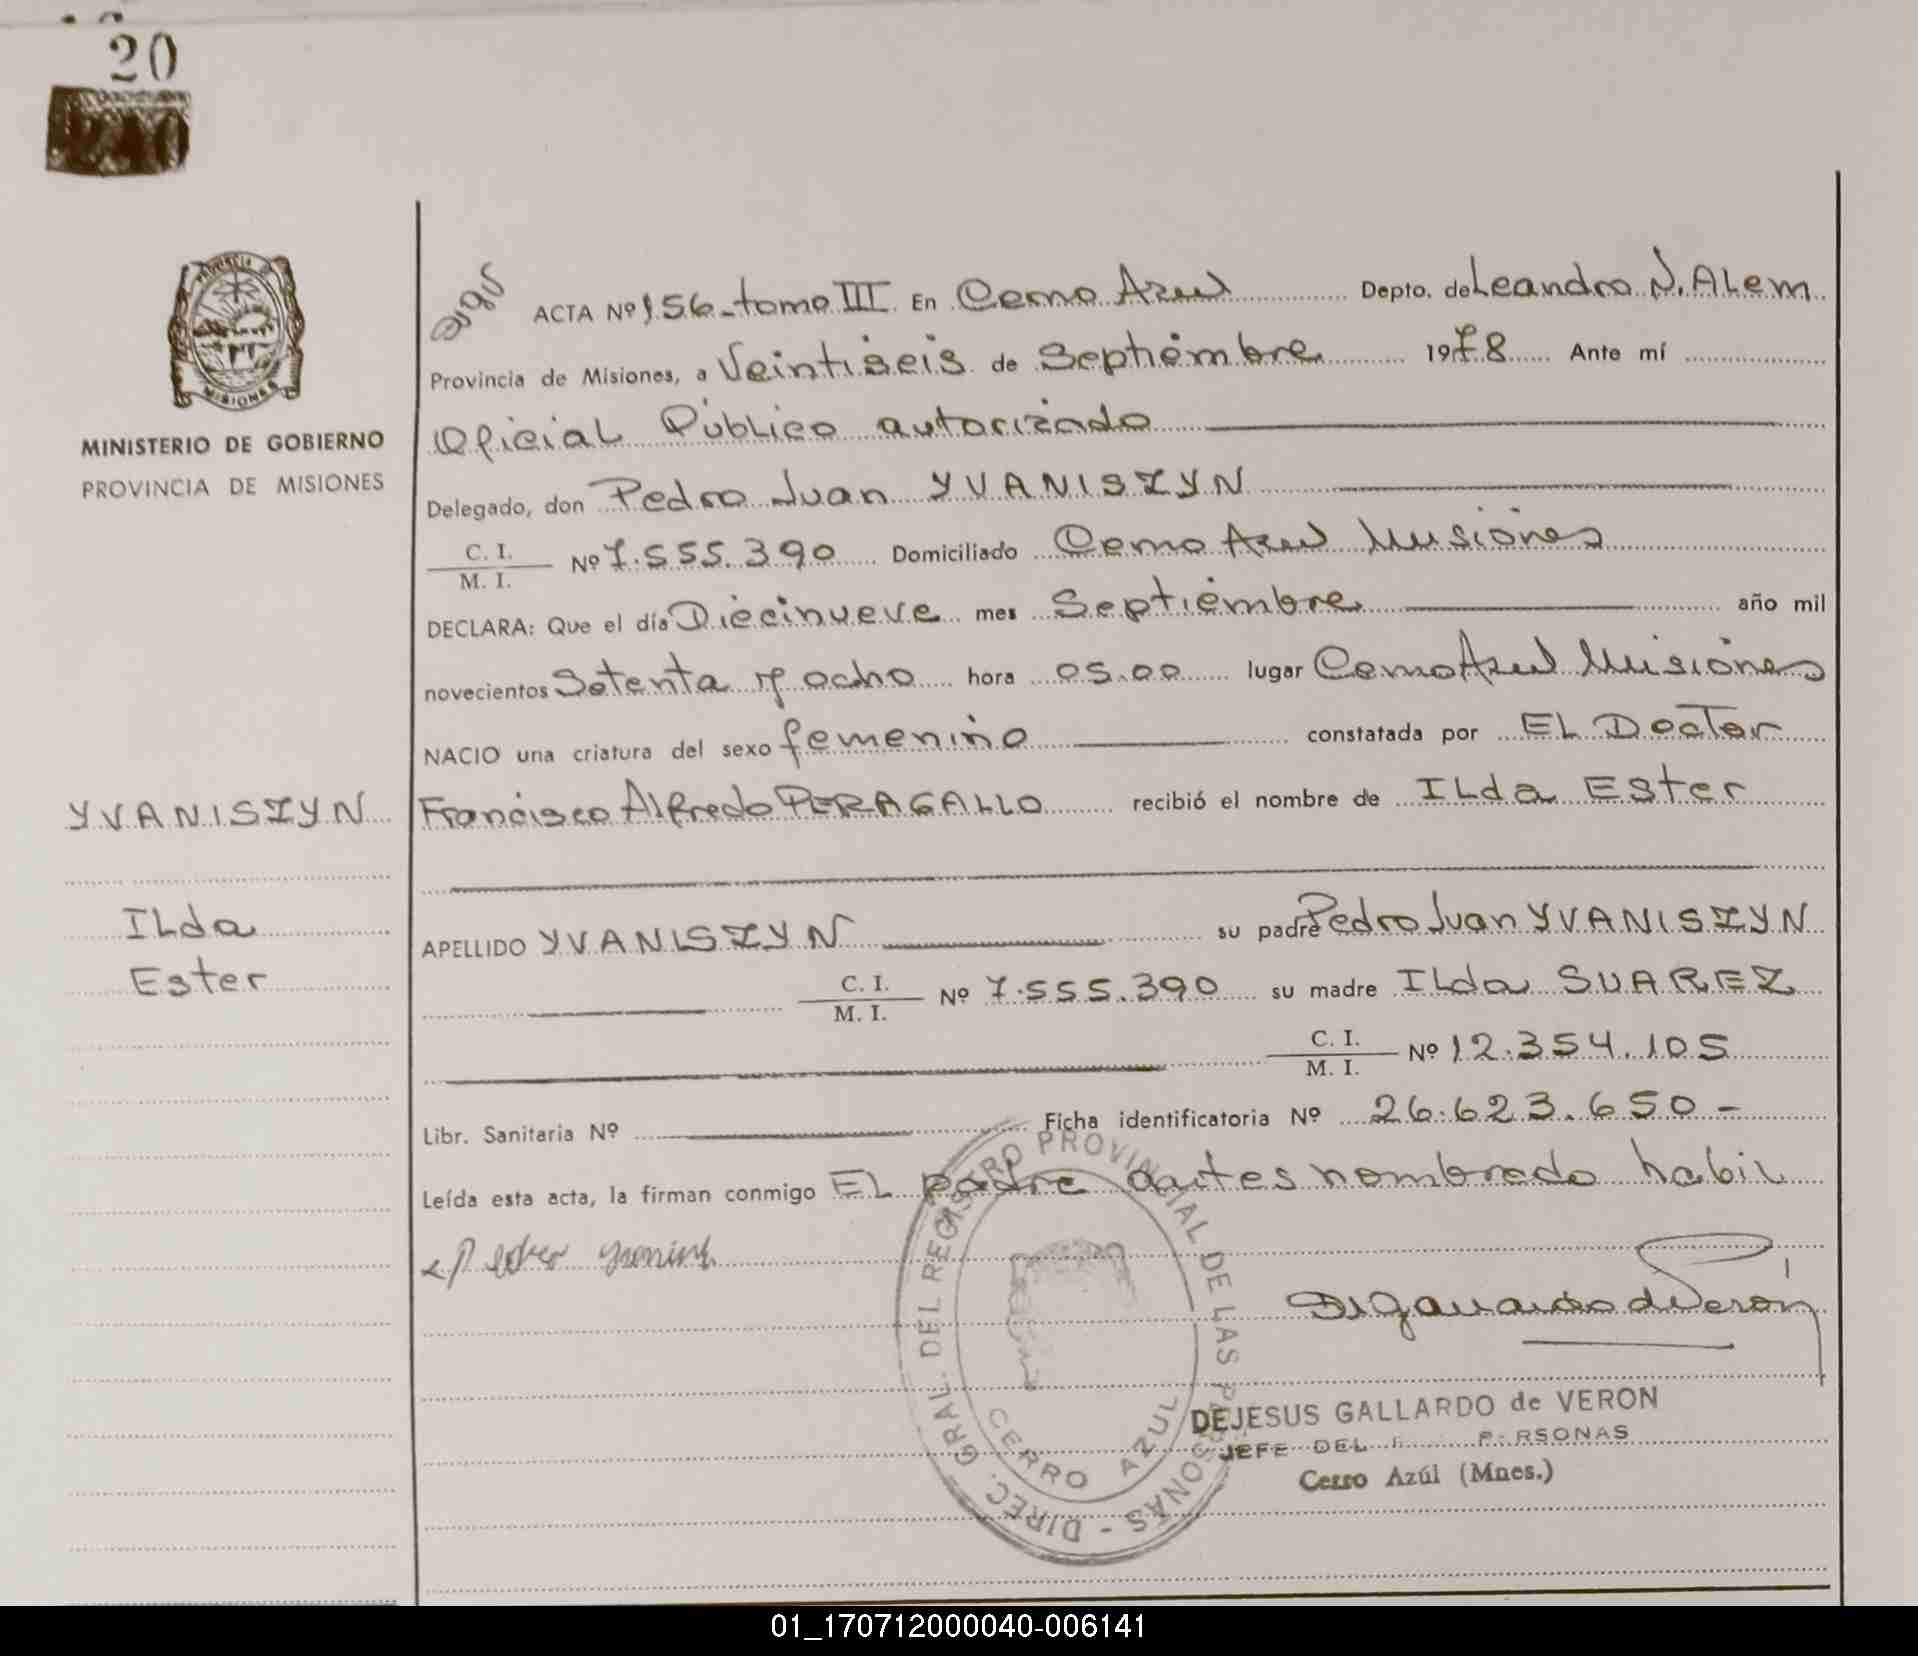 20
PROVINCIA DE
MISIONES
MINISTERIO DE GOBIERNO
PROVINCIA DE MISIONES
YVANISZYN
Ilda
Ester
ACTA Nº 156-tomo III En Cerro Azul Depto. de Leandro N. Alem
Provincia de Misiones, a Veintiseis de Septiembre 1978 Ante mí
Oficial Público autorizado
Delegado, don Pedro Juan YVANISZYN
C. I.
M. I. Nº 7.555.390 Domiciliado Cerro Azul Misiones
DECLARA: Que el día Diecinueve mes Septiembre año mil
novecientos Setenta y ocho hora 05.00 lugar Cerro Azul Misiones
NACIO una criatura del sexo femenino constatada por El Doctor
Francisco Alfredo PERAGALLO recibió el nombre de Ilda Ester
APELLIDO YVANISZYN su padre Pedro Juan YVANISZYN
C. I.
M. I. Nº 7.555.390 su madre Ilda SUAREZ
C. I.
M. I. Nº 12.354.105
Libr. Sanitaria Nº Ficha identificatoria Nº 26.623.650-
Leída esta acta, la firman conmigo El padre antes nombrado habil
DIREC. GRAL. DEL REGISTRO PROVINCIAL DE LAS PERSONAS -
CERRO AZUL
DEJESUS GALLARDO de VERON
JEFE DEL
Cerro Azúl (Mnes.)
01_170712000040-006141